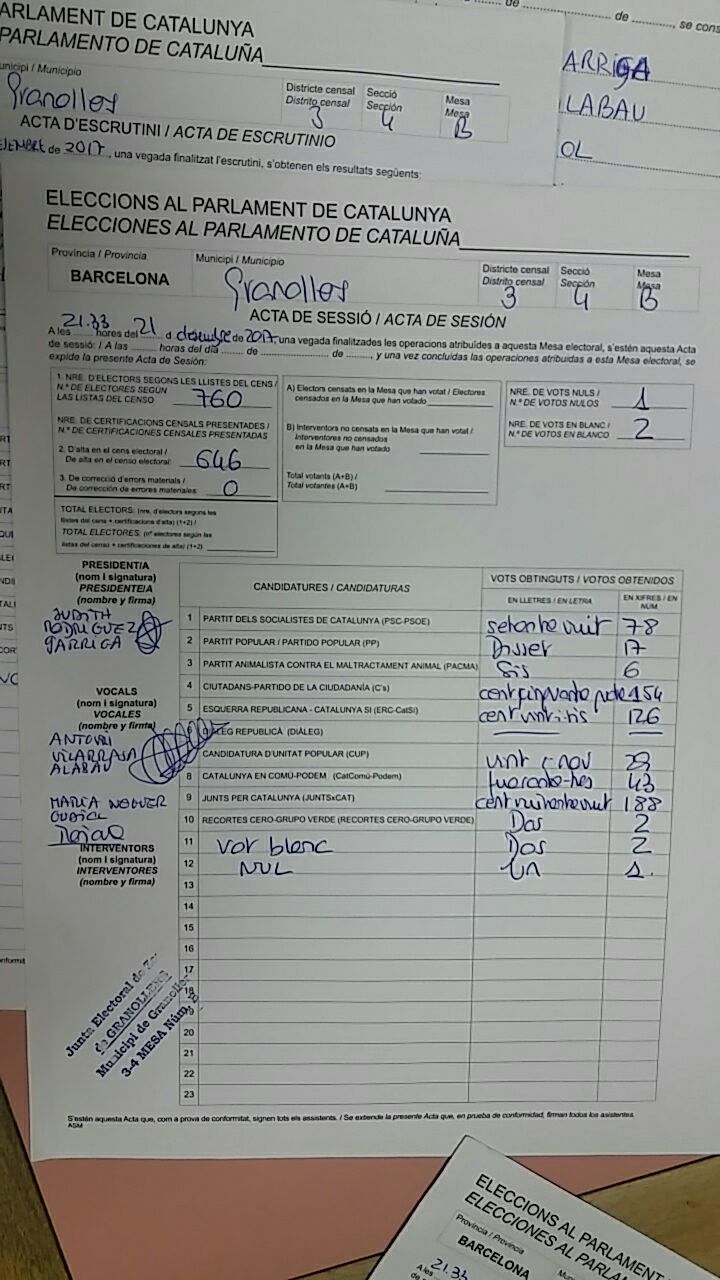 ARLAMENT DE CATALUNYA
PARLAMENTO DE CATALUÑA
unicipi / Municipio
Granollers
Districte censal
Distrito censal
3
Secció
Sección
4
Mesa
Mesa
B
ACTA D'ESCRUTINI / ACTA DE ESCRUTINIO
de 2017, una vegada finalitzat l'escrutini, s'obtenen els resultats següents:
de
de ........., se cons
ARRIGA
LABAU
OL
ELECCIONS AL PARLAMENT DE CATALUNYA
ELECCIONES AL PARLAMENTO DE CATALUÑA
Província / Provincia
BARCELONA
Municipi / Municipio
Granollers
Districte censal
Distrito censal
3
Secció
Sección
4
Mesa
Mesa
B
ACTA DE SESSIÓ / ACTA DE SESIÓN
A les 21.33 hores del 21 d desembre de 2017, una vegada finalitzades les operacions atribuïdes a aquesta Mesa electoral, s'estén aquesta Acta
de sessió: / A las ........ horas del día ........ de ........................ de ........, y una vez concluidas las operaciones atribuidas a esta Mesa electoral, se
expide la presente Acta de Sesión:
1. NRE. D'ELECTORS SEGONS LES LLISTES DEL CENS /
N.º DE ELECTORES SEGÚN
LAS LISTAS DEL CENSO 760
NRE. DE CERTIFICACIONS CENSALS PRESENTADES /
N.º DE CERTIFICACIONES CENSALES PRESENTADAS
2. D'alta en el cens electoral /
De alta en el censo electoral: 646
3. De correcció d'errors materials /
De corrección de errores materiales: 0
TOTAL ELECTORS: (nre. d'electors segons les
llistes del cens + certificacions d'alta) (1+2) /
TOTAL ELECTORES: (nº electores según las
listas del censo + certificaciones de alta) (1+2)
A) Electors censats en la Mesa que han votat / Electores
censados en la Mesa que han votado
B) Interventors no censats en la Mesa que han votat /
Interventores no censados
en la Mesa que han votado
Total votants (A+B) /
Total votantes (A+B)
NRE. DE VOTS NULS /
N.º DE VOTOS NULOS 1
NRE. DE VOTS EN BLANC /
N.º DE VOTOS EN BLANCO 2
PRESIDENT/A
(nom i signatura)
PRESIDENTE/A
(nombre y firma)
JUDITH
RODRIGUEZ
GARRIGA
VOCALS
(nom i signatura)
VOCALES
(nombre y firma)
ANTONI
VILARRASA
ALABAU
MARIA NOGUER
INTERVENTORS
(nom i signatura)
INTERVENTORES
(nombre y firma)
CANDIDATURES / CANDIDATURAS
VOTS OBTINGUTS / VOTOS OBTENIDOS
EN LLETRES / EN LETRA
EN XIFRES / EN NÚM.
1 PARTIT DELS SOCIALISTES DE CATALUNYA (PSC-PSOE) setanta vuit 78
2 PARTIT POPULAR / PARTIDO POPULAR (PP) Disset 17
3 PARTIT ANIMALISTA CONTRA EL MALTRACTAMENT ANIMAL (PACMA) Sis 6
4 CIUTADANS-PARTIDO DE LA CIUDADANÍA (C's) 154
5 ESQUERRA REPUBLICANA - CATALUNYA SÍ (ERC-CatSí) cent vint-i-sis 126
6 DIÀLEG REPUBLICÀ (DIÀLEG)
CANDIDATURA D'UNITAT POPULAR (CUP) vint i nou 29
8 CATALUNYA EN COMÚ-PODEM (CatComú-Podem) 43
9 JUNTS PER CATALUNYA (JUNTSxCAT) cent vuitanta vuit 188
10 RECORTES CERO-GRUPO VERDE (RECORTES CERO-GRUPO VERDE) Dos 2
11 Vot blanc Dos 2
12 NUL Un 1.
13
14
15
16
17
18
19
20
21
22
23
Junta Electoral de Zo
de GRANOLLERS
Municipi de Granoller
3-4 MESA Núm.
S'estén aquesta Acta que, com a prova de conformitat, signen tots els assistents. / Se extiende la presente Acta que, en prueba de conformidad, firman todos los asistentes.
ASM
ELECCIONS AL PARLAMENT
ELECCIONES AL PARLA
Província / Provincia
BARCELONA
A les 21.33